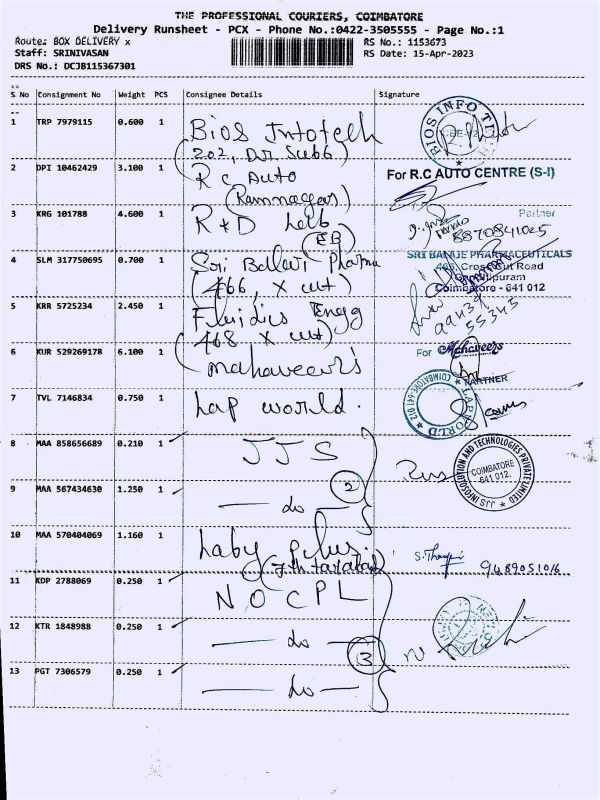 THE PROFESSIONAL COURIERS, COIMBATORE
Delivery Runsheet - PCX - Phone No.:0422-3505555 - Page No.:1
Route: BOX DELIVERY x
RS No.: 1153673
Staff: SRINIVASAN
RS Date: 15-Apr-2023
DRS No.: DCJB115367301
S No Consignment No Weight PCS Consignee Details Signature
1 TRP 7979115 0.600 1 Bios Infotech
(202, Dr. Subb)
BIOS INFO TECH
2 DPI 10462429 3.100 1 R C Auto
(Ramnagar)
For R.C AUTO CENTRE (S-I)
Partner
3 KRG 101788 4.600 1 R + D Lab
(EB)
8870841025
4 SLM 317750695 0.700 1 Sri Balaji Pharma
(466, X cut)
SRI BALAJE PHARMACEUTICALS
466, Cross Cut Road
Gandhipuram
Coimbatore - 641 012
5 KRR 5725234 2.450 1 Fluidics Engg
(468 X cut)
55345
6 KUR 529269178 6.100 1 Mahaveer's
For Mahaveers
PARTNER
7 TVL 7146834 0.750 1 Lap world.
LAP WORLD
COIMBATORE-641 012
8 MAA 858656689 0.210 1 JJS
JJS INFOSOLUTION AND TECHNOLOGIES PRIVATE LIMITED
COIMBATORE
641 012.
9 MAA 567434630 1.250 1 — do — 2
10 MAA 570404069 1.160 1
9489051016
11 KDP 2788069 0.250 1 NOCPL
12 KTR 1848988 0.250 1 — do — 3
13 PGT 7306579 0.250 1 — do —